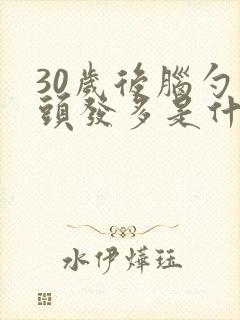 30歲後腦勺
頭發多是什
水伊燁珏